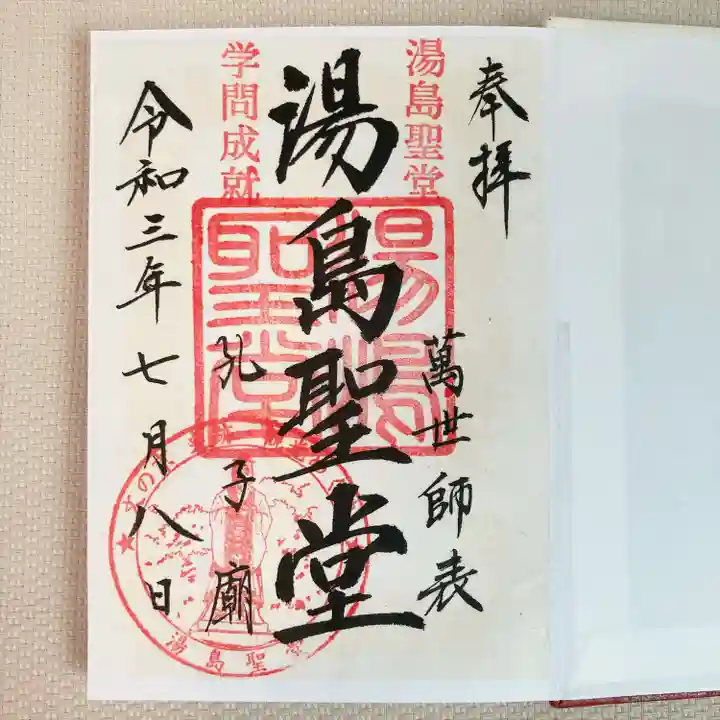 奉拝
湯島聖堂
萬世師表
湯島聖堂
湯嶋聖堂
学問成就
孔子廟
令和三年七月八日
湯島聖堂